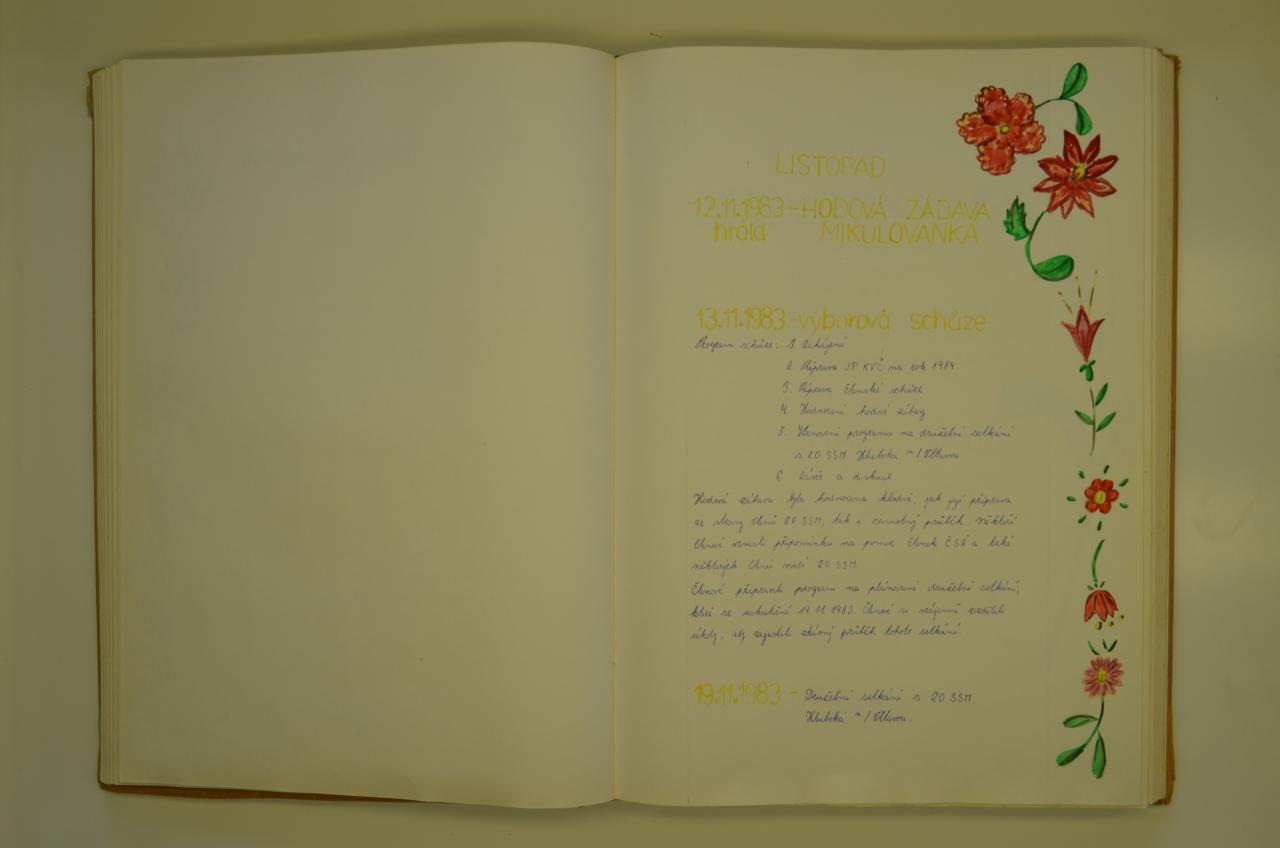 LISTOPAD
12.11.1983 - HODOVÁ ZÁBAVA
hrála MIKULOVANKA
13.11.1983 - výborová schůze
Program schůze: 1. Zahájení
2. Příprava JP KVČ na rok 1984
3. Příprava členské schůze
4. Hodnocení hodové zábavy
5. Stanovení programu na družební setkání
s ZO SSM Hluboká n/Vltavou
6. Závěr a diskuse
Hodová zábava byla hodnocena kladně, jak její příprava
ze strany členů ZO SSM, tak i samotný průběh. Někteří
členové vznesli připomínku na pomoc členek ČSŽ a také
některých členů naší ZO SSM.
Členové připravili program na plánované družební setkání,
které se uskuteční 19.11.1983. Členové si vzájemně rozdělili
úkoly, aby zajistili zdárný průběh tohoto setkání.
19.11.1983 - Družební setkání s ZO SSM
Hluboká n/Vltavou